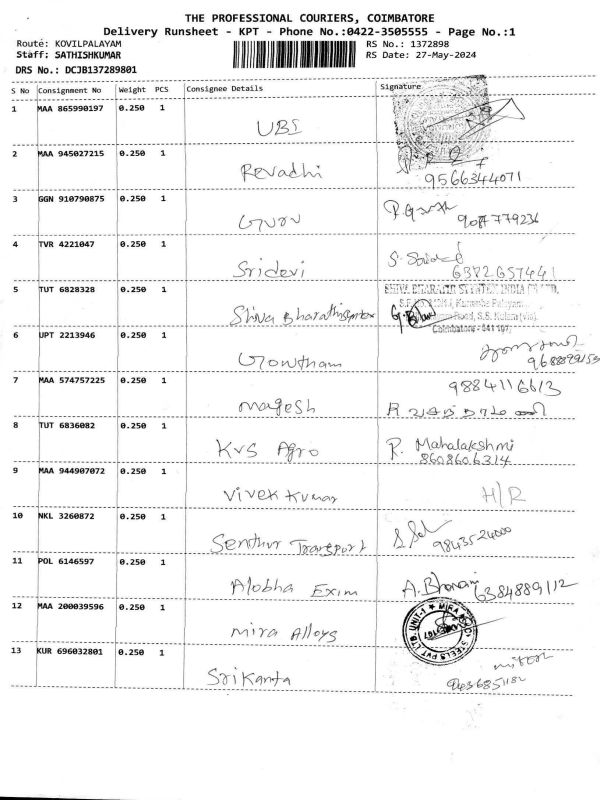 THE PROFESSIONAL COURIERS, COIMBATORE
Delivery Runsheet - KPT - Phone No.:0422-3505555 - Page No.:1
Route: KOVILPALAYAM RS No.: 1372898
Staff: SATHISHKUMAR RS Date: 27-May-2024
DRS No.: DCJB137289801
S No Consignment No Weight PCS Consignee Details Signature
1 MAA 865990197 0.250 1 UBI
2 MAA 945027215 0.250 1 Revadhi 9566344071
3 GGN 910790875 0.250 1 Guru
4 TVR 4221047 0.250 1 Sridevi 6382657441
5 TUT 6828328 0.250 1 Shiva Bharathi
Coimbatore - 641 107
6 UPT 2213946 0.250 1 Gowtham
7 MAA 574757225 0.250 1 Magesh 9884116613
8 TUT 6836082 0.250 1 KVS Agro P. Mahalakshmi
8608606314
9 MAA 944907072 0.250 1 Vivek Kumar H/R
10 NKL 3260872 0.250 1 Senthur Transport 9843524000
11 POL 6146597 0.250 1 Alobha Exim A. Bhavani 6384889112
12 MAA 200039596 0.250 1 Mira Alloys
13 KUR 696032801 0.250 1 Srikanta